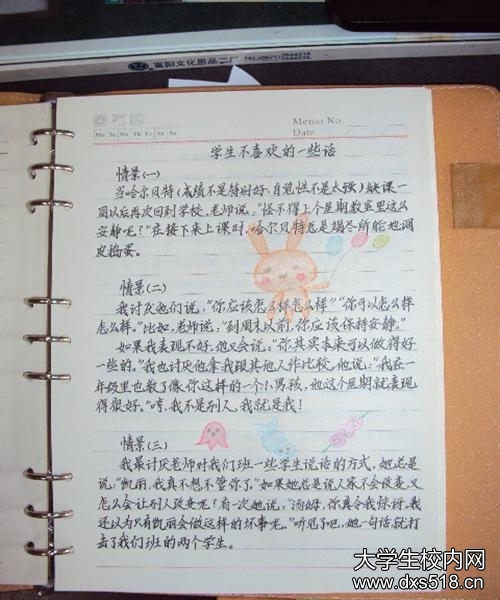 富阳文化用品二厂
Memo No.
Mo Tu We Th Fr Sa Su
Date
学生不喜欢的一些话
情景(一)
当哈尔贝特(成绩不是特别好,自觉性不是太强)缺课一
周以后再次回到学校,老师说:"怪不得上个星期教室里这么
安静呢?"在接下来上课时,哈尔贝特总是竭尽所能地调
皮捣蛋。
情景(二)
我讨厌他们说:"你应该怎么样怎么样""你可以怎么样
怎么样。"比如,老师说:"到周末以前,你应该保持安静。"
如果我表现不好,他又会说:"你其实本来可以做得好
一些的。"我也讨厌他拿我跟其他人作比较。他说:"我在一
年级里也教了像你这样的一个小男孩,他这个星期就表现
得很好。"哼,我不是别人,我就是我!
情景(三)
我最讨厌老师对我们班一些学生说话的方式。她总是
说:"凯丽,我真不想不管你了。"如果她总是说人家不会改变,又
怎么会让别人改变呢?有一次她说:"汤姆,你真令我惊讶,我
还以为只有凯丽会做这样的坏事呢。"听见了吧,她一句话就打
击了我们班的两个学生。
大学生校内网
www.dxs518.cn